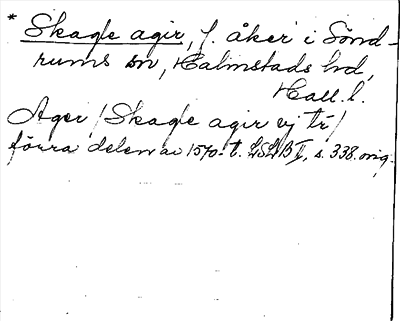 * Skagle agir, f. åker i Sönd-
rums sn, Halmstads hd,
Hall. l.
Ager / Skagle agir vj tr /
förra delen av 1570-t. LSLB II, s. 338. orig.